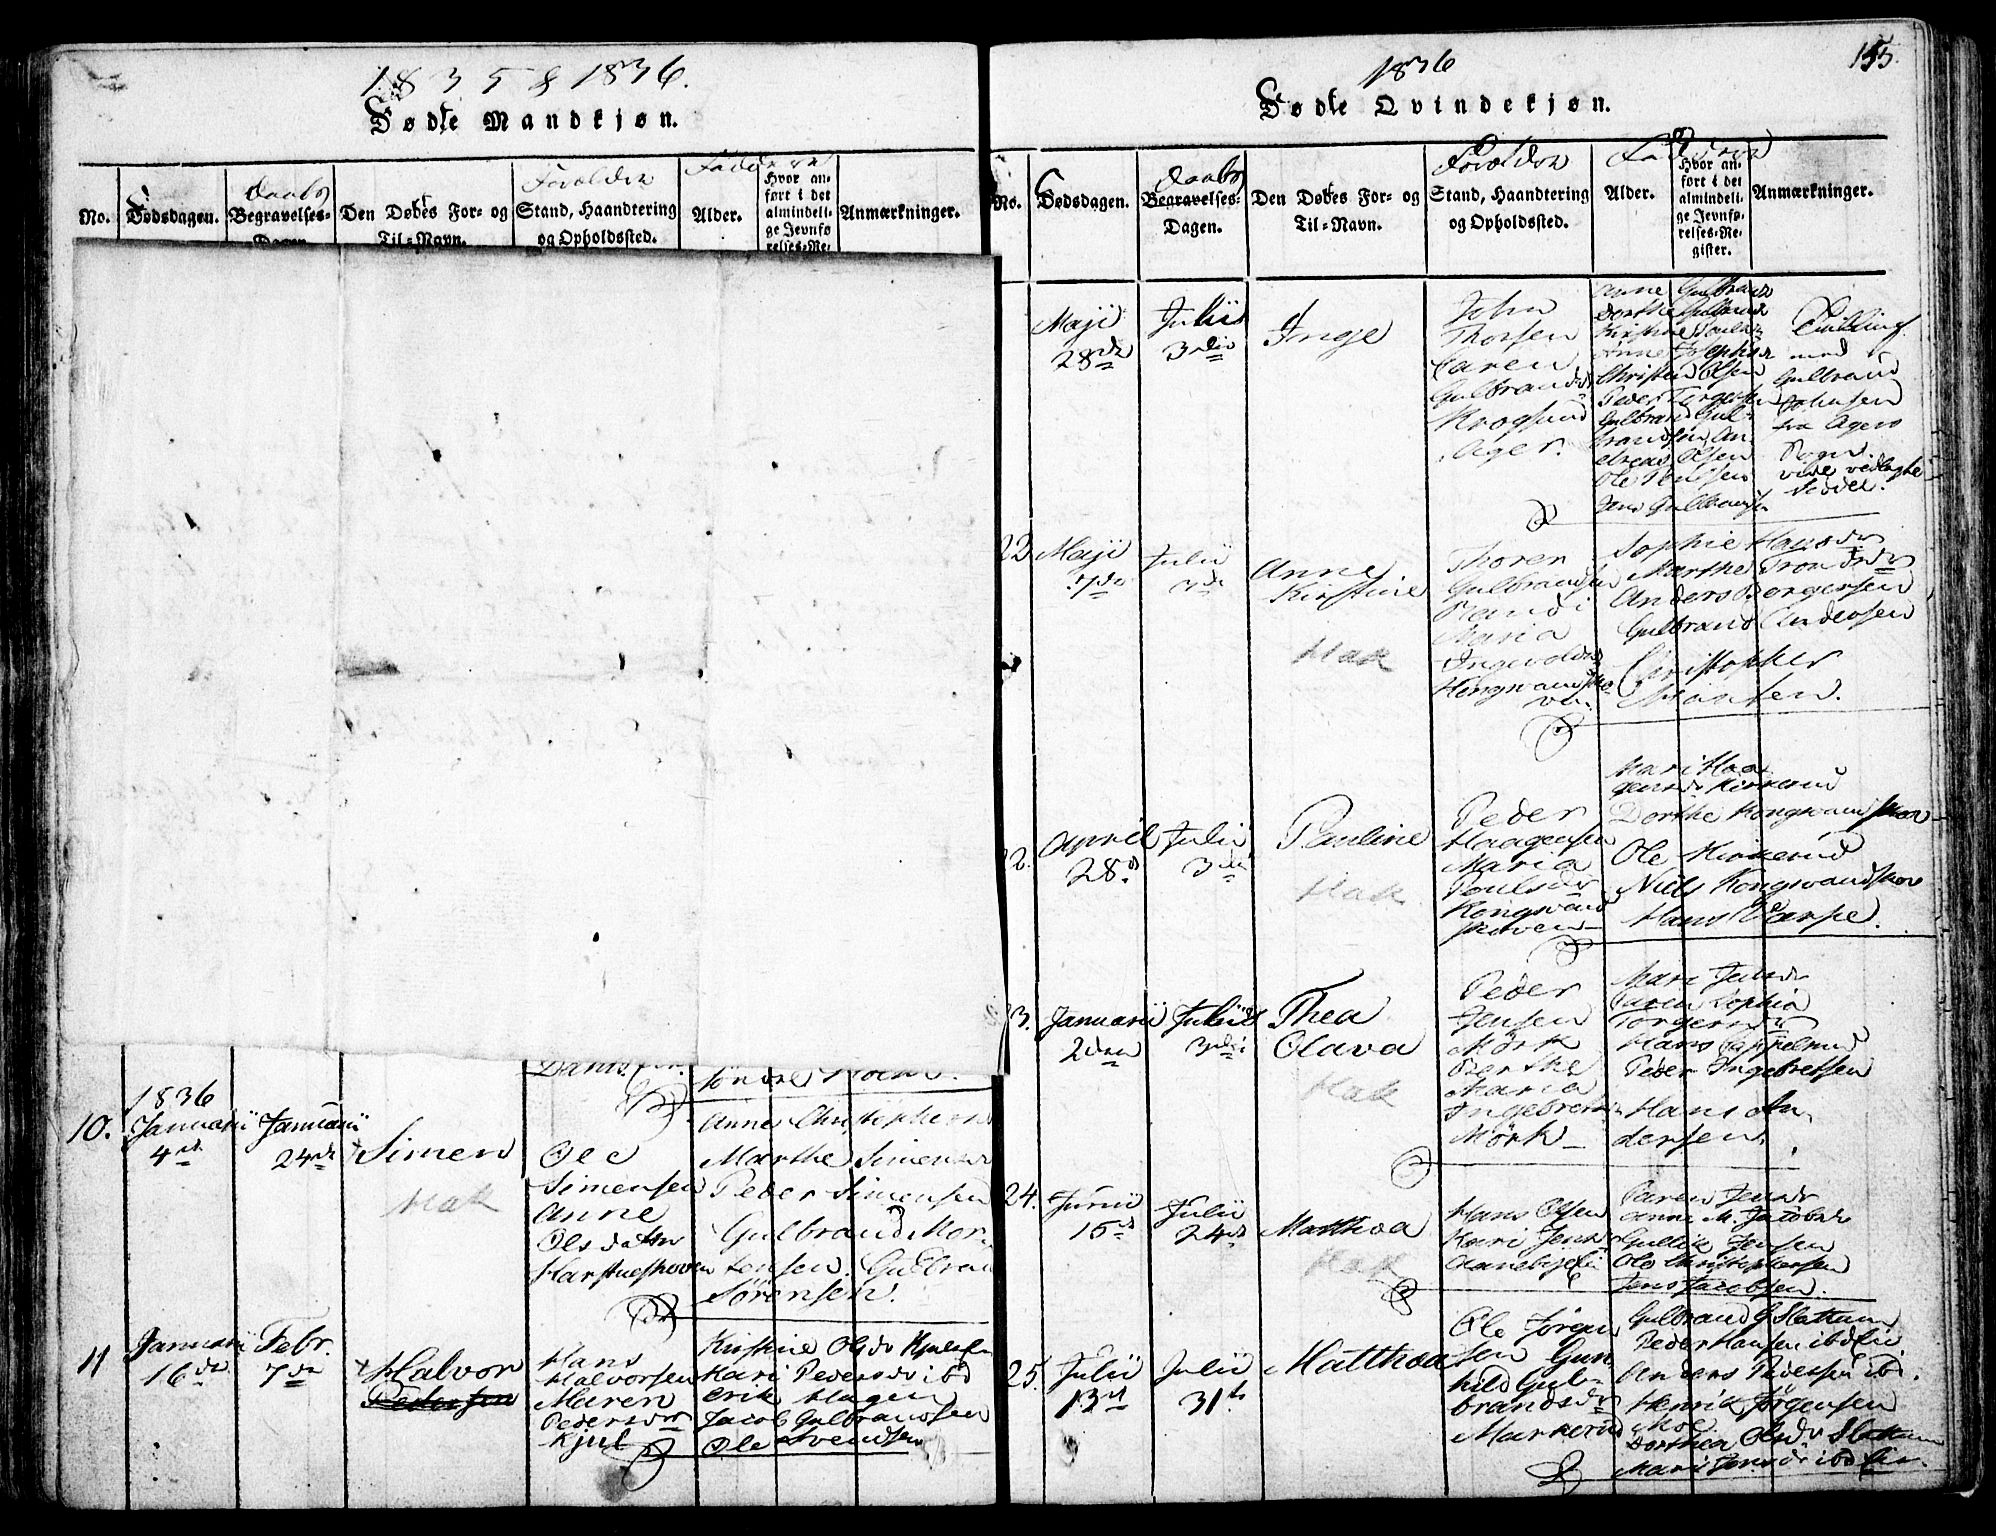 1835 & 1836.
Dødte Mandkjøn.
No.
Dødsdagen.
Daabs
Begravelses-
Dagen
Den Døbtes For- og
Til-Navn.
Forældre
Stand, Haandtering
og Opholdssted.
Alder.
Hvor an-
ført i det
almindeli-
ge Jevnfø
relses-Re-
Anmærkninger.
1836
10.
Januarii
4de
Januarii
24de
Simen
Hak
Ole
Simensen
Anne
Olsdatter
Harstueskoven
Anne Christophersd
Marthe Simensdr
Peder Simensen
Gulbrand Mor-
tensen. Gulbran
Sörensen.
11
Januarii
16de
Febr.
7de
Halvor
Pedersen
Hans
Halvorsen
Maren
Pedersdr
Kjul
Kristine Olsdr
Kari Pedersdr ibd
Erik Hagen
Jacob Gulbransen
Ole Svendsen
155.
1836
Dødte Qvindekjøn.
No.
Dødsdagen.
Daabs
Begravelses-
Dagen.
Den Døbtes For- og
Til-Navn.
Forældre
Stand, Haandtering
og Opholdssted.
Alder.
Hvor an-
ført i det
almindeli-
ge Jevnfø-
relses-Re-
gister.
Anmærkninger.
Maji
28de
Julii
3die
Inge
John
Thorsen
Caren
Gulbrandsd
Krogsund
Ager.
Anne Gulbrand
Dorthe Gulbrand
Anne Josephsd
Christen Olsen
Peder Torgersen
Gulbrand Gul-
brandsen, An-
dreas Olsen
Ole Poulsen
Jens Gulbransen
Tvilling
med
Gulbrand
Johnsen
fra Agers
Sogn.
vide vedlagte
Seddel.
22
Maji
7de
Julii
3die
Anne
Kirstine
Hak
Thorer
Gulbrandsen
Randi
Maria
Ingvoldsd
Kongsvandsko-
ven.
Sophie Hansdr
Marthe Trondsdr
Anders Borgersen
Gulbrand Andersen
Christopher
Hansen.
22.
April
28d
Julii
3die
Pauline
Hak
Peder
Haagensen
Maria
Poulsdr
Kongsvand
skoven
Mari Haa-
gensd Kirkerud
Dorthe Kongsvandskov
Ole Kirkerud
Niels Kongsvandskov
Hans Varpe.
23.
Januarii
2den
Julii
3die
Thea
Olava
Hak
Peder
Jensen
Mörk
Berthe
Maria
Ingebretsd
Mörk
Mari Jensdr
Caren Sophia
Torgersdr
Hans Cappelrud
Peder Ingebretsen
Hans An-
dersen.
24.
Junii
15de
Julii
24de
Matthea
Hak
Hans Olsen
Kari Jensd
Caren Jensdr
Anne M. Jacobsdr
Gullik Jensen
Ole Christophersen
Jens Jacobsen.
25.
Julii
13de
Julii
31te
Matthea
Ole Jören
sen Gun
hild Gul-
brandsdr
Markerud
Gulbrand G Slattum
Peder Hansen ibd
Anders Pedersen ibd.
Henrik Jörgensen
Moe
Dorthea Olsdr Slattum
Mari Jensdr ibd